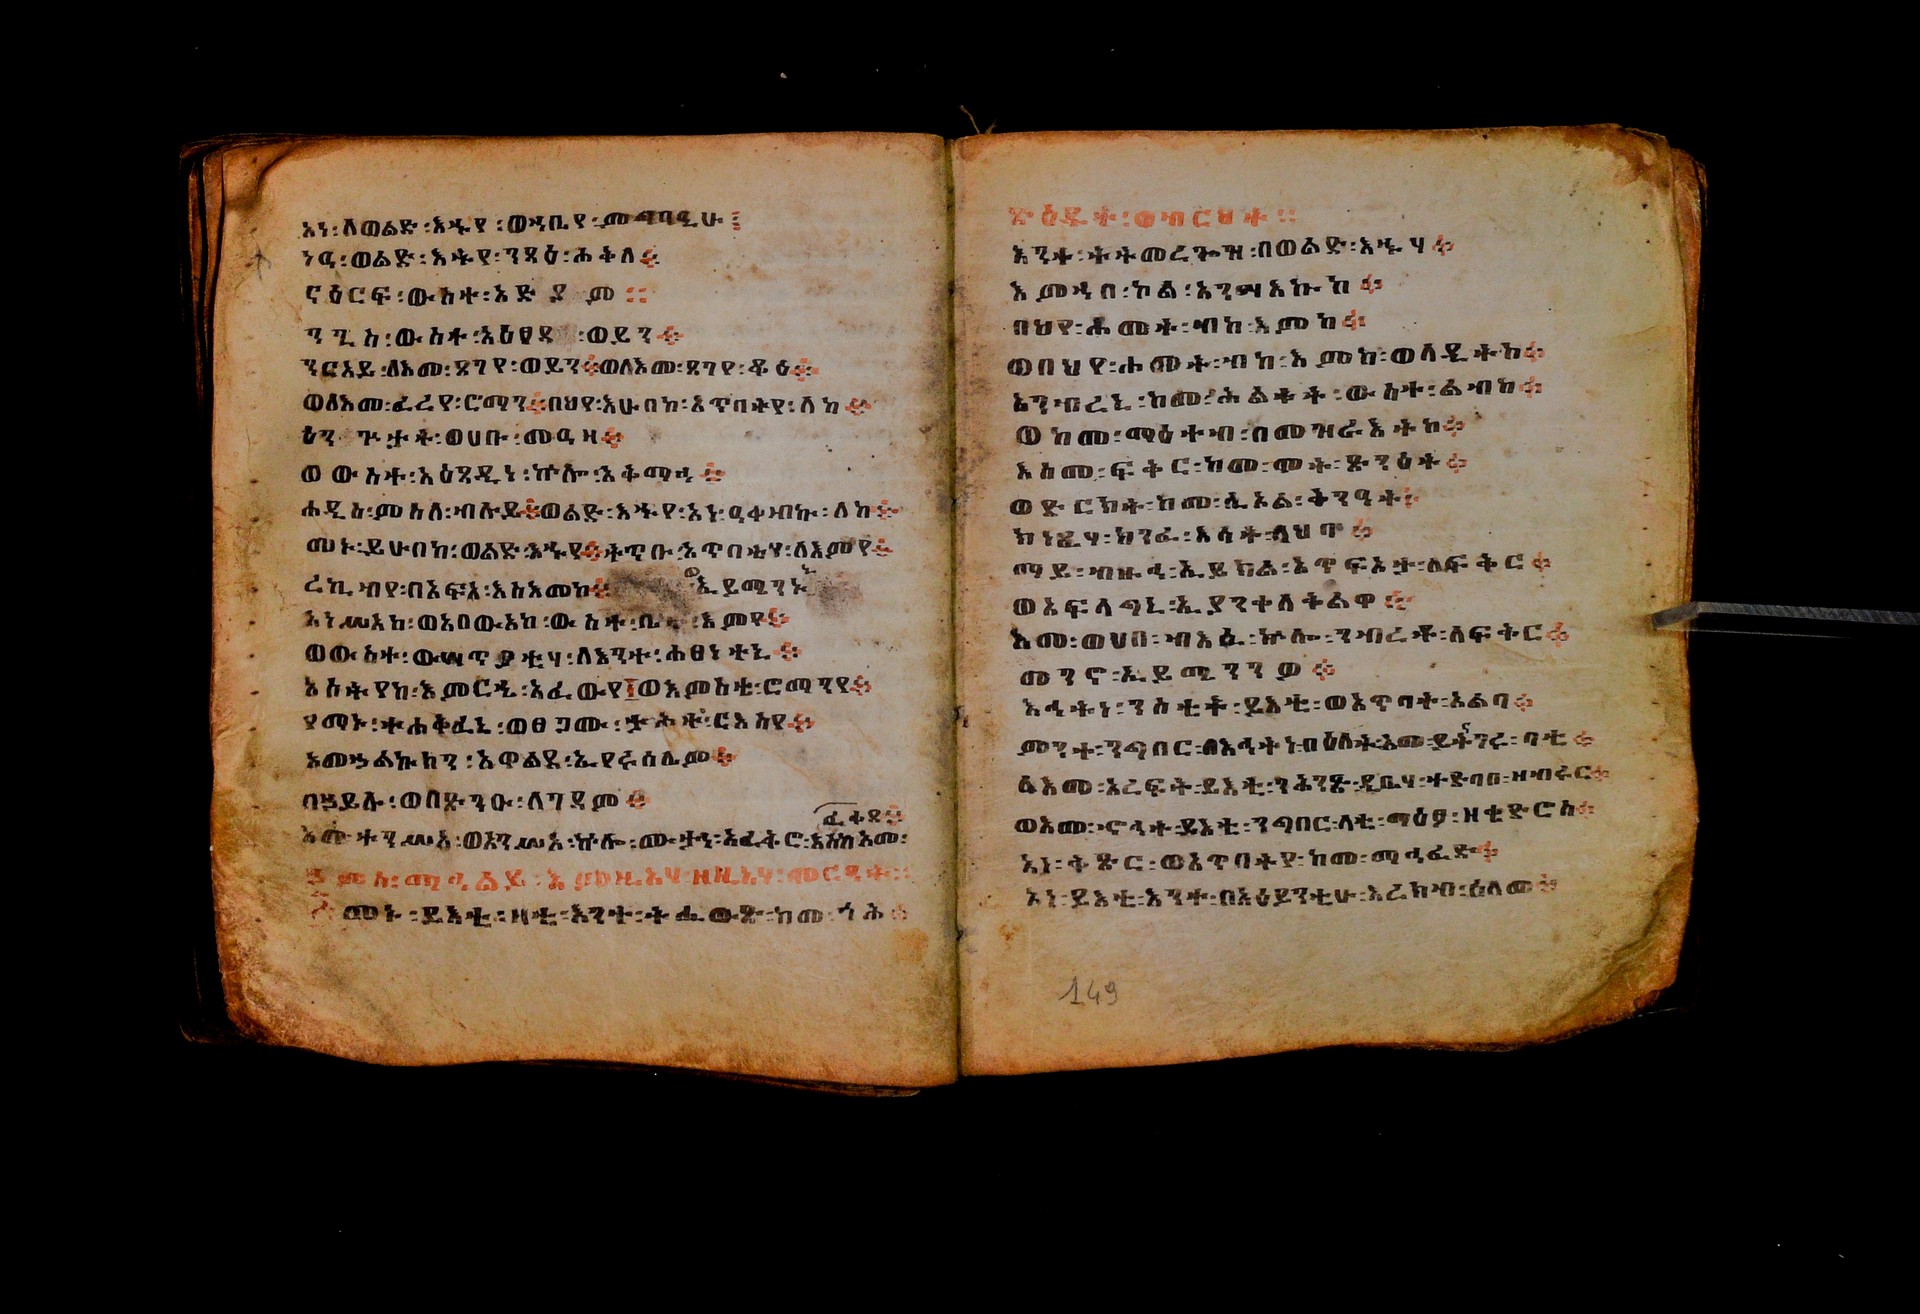 አነ፡ ለወልድ፡ እኁየ፡ ወኀቤየ፡ መግባኢሁ፡
ነዓ፡ ወልድ፡ እኁየ፡ ንጻዕ፡ ሐቅለ፨
ኖዕርፍ፡ ውስተ፡ አድያም ፡፡
ንጊስ፡ ውስተ፡ አዕፀደ፡ ወይን፨
ንርአይ፡ ለእመ፡ ጸገየ፡ ወይን፨ ወለእመ፡ ጸገየ፡ ቆዕ፨
ወለእመ፡ ፈረየ፡ ሮማን፨ በህየ፡ እሁበከ፡ አጥባትየ፡ ለከ፨
ዕንጕታት፡ ወሀቡ፡ መዓዛ፨
ወውስተ፡ አዕጻዲነ፡ ኵሉ፡ አቅማሓ፨
ሐዲስ፡ ምስለ፡ ብሉይ፨ ወልድ፡ እኁየ፡ አነ፡ ዓቀብኩ፡ ለከ፨
መኑ፡ ይሁበከ፡ ወልድ፡ እኁየ፨ ትጥቡ፡ አጥባቲሃ፡ ለእምየ፨
ረኪብየ፡ በአፍአ፡ እስእመከ፨ ወኢይሜንኑ
አነሥአከ፡ ወአበውአከ፡ ውስተ፡ ቤተ፡ እምየ፨
ወውስተ፡ ውሣጥያቲሃ፡ ለእንተ፡ ሐፀነተኒ፨
አስትየከ፡ እምርኄ፡ አፈውየ፤ ወእመስቴ፡ ሮማንየ፨
የማኑ፡ ተሐቅፈኒ፡ ወፀጋሙ፡ ታሕተ፡ ርእስየ፨
አመኃልኩክን፡ አዋልደ፡ ኢየሩሳሌም፨
በኃይሉ፡ ወበጽንዑ፡ ለገዳም፨
እመ፡ ተንሥአ፡ ወአንሥአ፡ ኵሎ፡ ሙታነ፡ አፈቅሮ፡ እስከ፡ እመ፡ ፈቀደ፨
መኑ፡ ይእቲ፡ ዛቲ፡ እንተ፡ ትሔውጽ፡ ከመ፡ ጎሕ፨
ጽዕዱት፡ ወብርህት ፡፡
እንተ፡ ትትመረጐዝ፡ በወልድ፡ እኁሃ፨
እምኀበ፡ ኮል፡ አንሣእኩከ፨
በህየ፡ ሐመት፡ ብከ፡ እምከ፨
ወበህየ፡ ሐመት፡ ብከ፡ እምከ፡ ወለዲትከ፨
አንብረኒ፡ ከመ፡ ሕልቀት፡ ውስተ፡ ልብከ፨
ወከመ፡ ማዕተብ፡ በመዝራእትከ፨
እስመ፡ ፍቅር፡ ከመ፡ ሞት፡ ጽንዕት፨
ወድርክት፡ ከመ፡ ሲኦል፡ ቅንዓት፨
ክነፊሃ፡ ክንፈ፡ እሳት፡ ላህባ፨
ማይ፡ ብዙኅ፡ ኢይክል፡ አጥፍኦታ፡ ለፍቅር፨
ወአፍላግኒ፡ ኢያንተለቅልዋ፨
እመ፡ ወሀበ፡ ብእሲ፡ ኵሎ፡ ንብረቶ፡ ለፍቅር፨
መንኖ፡ ኢይሜንንዎ፨
እኅትነ፡ ንስቲት፡ ይእቲ፡ ወአጥባት፡ አልባ፨
ምንተ፡ ንግበር፡ ለእኅትነ፡ በዕለት፡ እመ፡ ይትናገሩ፡ ባቲ፨
ለእመ፡ አረፍት፡ ይእቲ፡ ንሕንጽ፡ ዲቤሃ፡ ተድባበ፡ ዘብሩር፨
ወእመ፡ ኆኅት፡ ይእቲ፡ ንግበር፡ ላቲ፡ ማዕፆ፡ ዘቄድሮስ፨
አነ፡ ቅጽር፡ ወአጥባትየ፡ ከመ፡ ማኅፈድ፨
አነ፡ ይእቲ፡ እንተ፡ በአዕይንቲሁ፡ እረክብ፡ ሰላመ፨
149